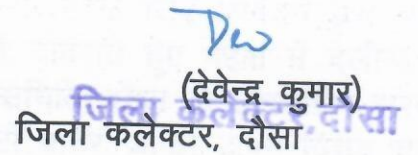 Dev
(देवेन्द्र कुमार)
जिला कलेक्टर, दौसा
जिला कलेक्टर, दौसा